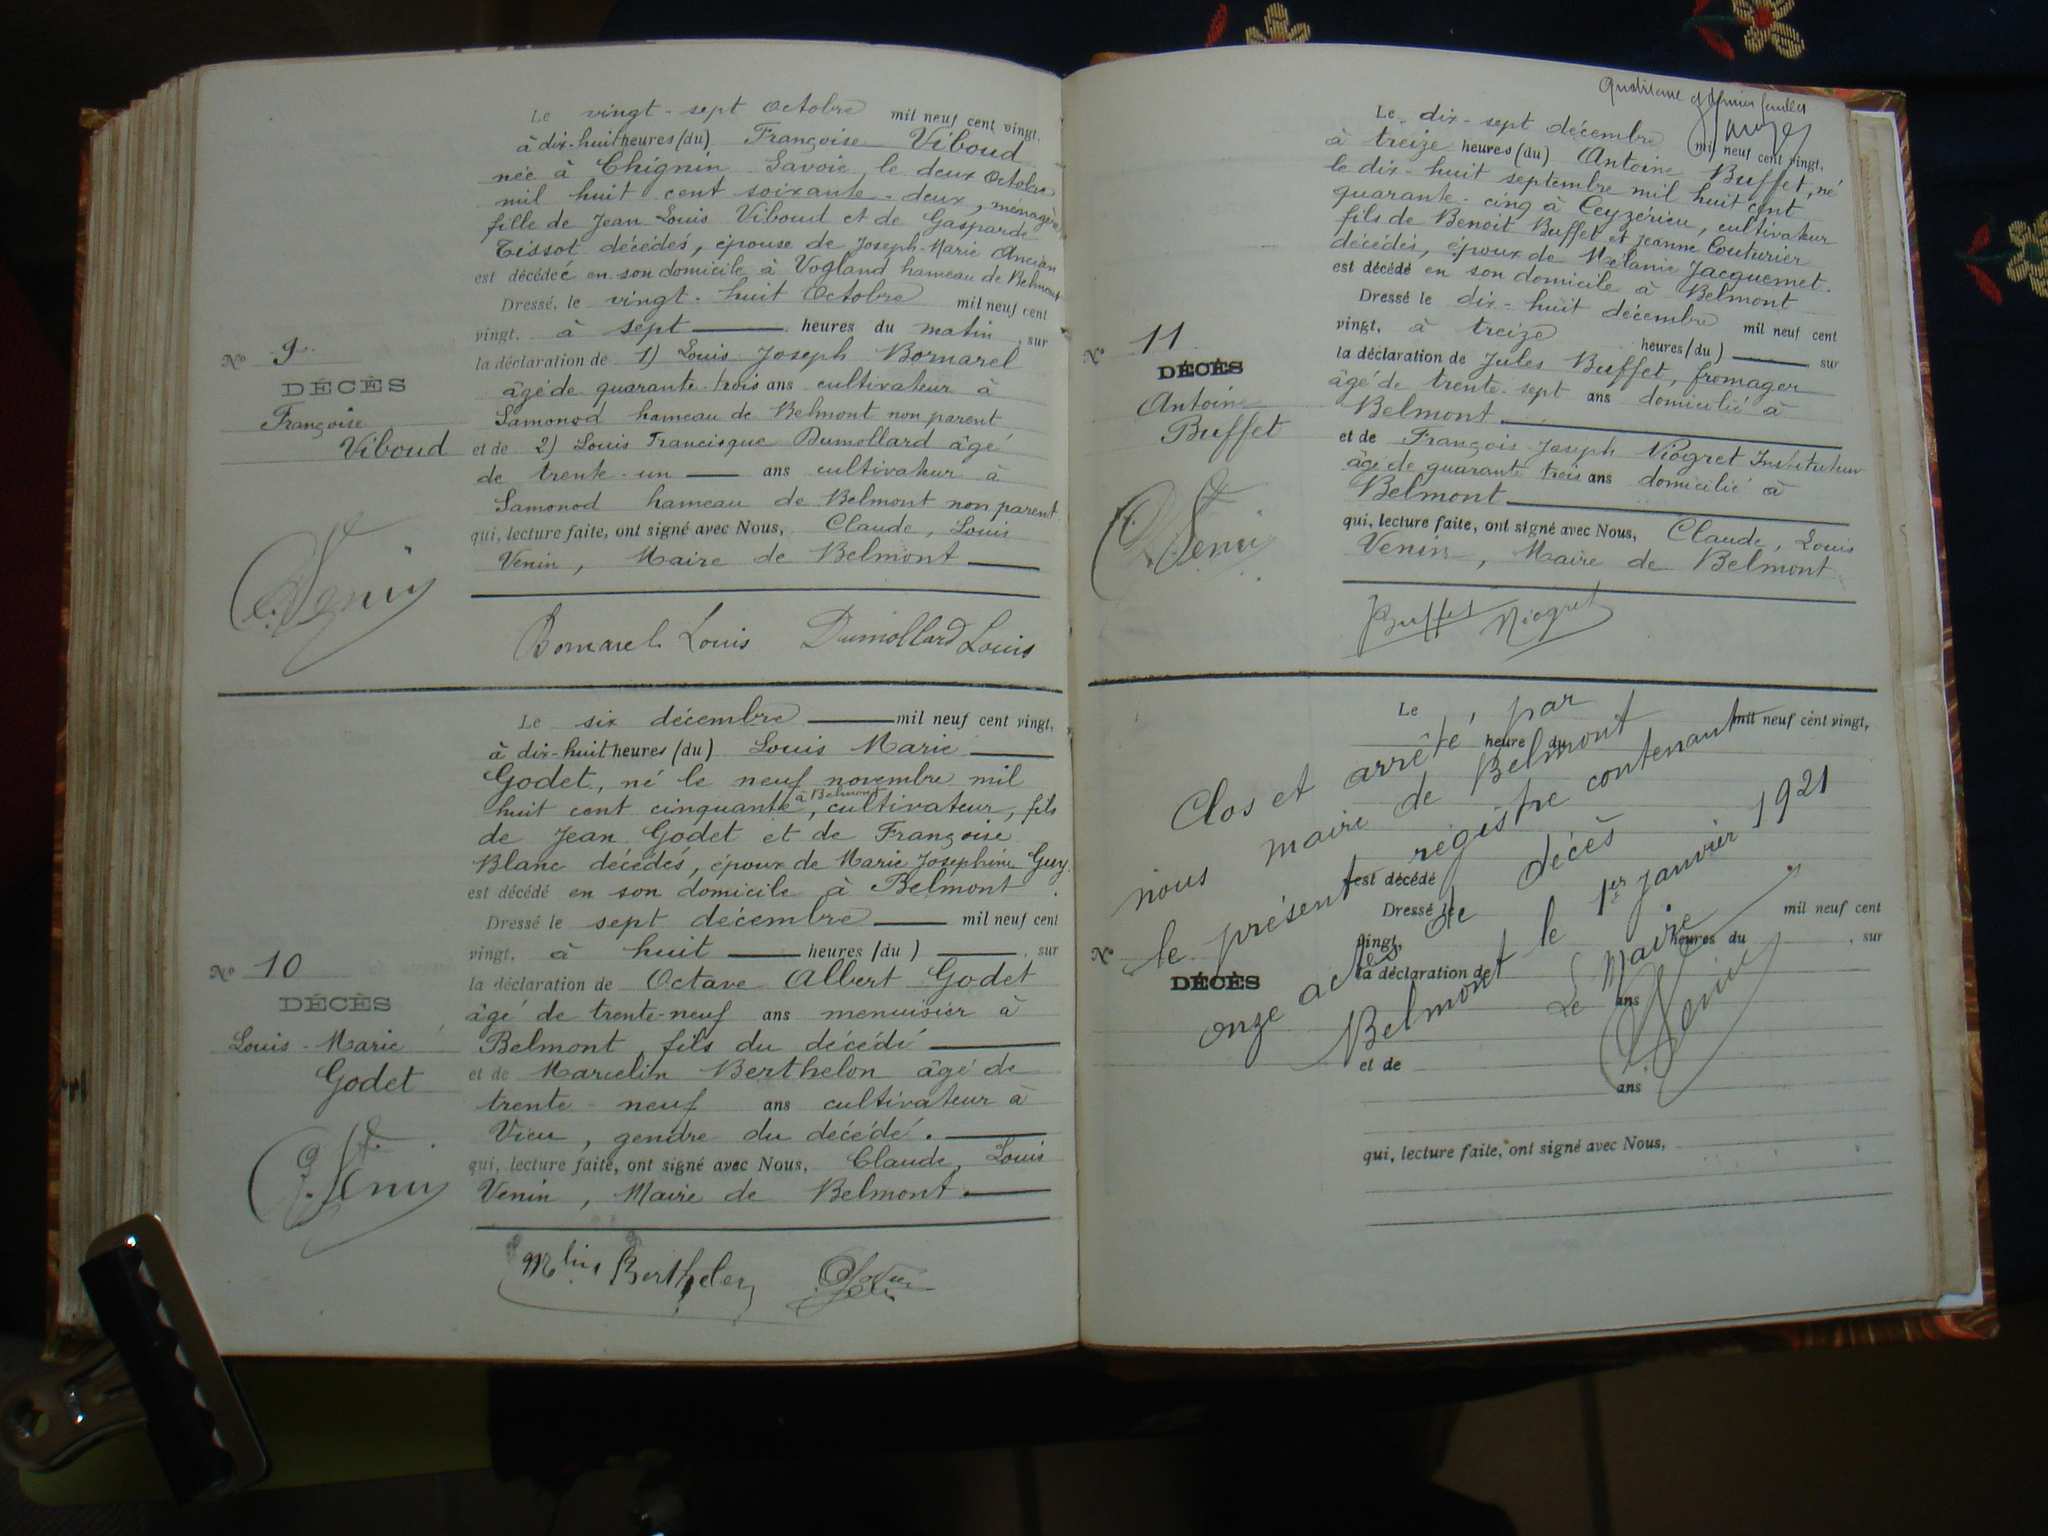 Le vingt-sept Octobre mil neuf cent vingt,
à dix-huit heures (du) Françoise Viboud
née à Chignin Savoie, le deux Octobre
mil huit cent soixante-deux, ménagère
fille de Jean Louis Viboud et de Gasparde
Tissot décédés, épouse de Joseph-Marie Ancian
est décédée en son domicile à Vogland hameau de Belmont
Dressé, le vingt-huit Octobre mil neuf cent
vingt, à sept heures du matin, sur
la déclaration de 1) Louis Joseph Bornarel
âgé de quarante-trois ans cultivateur à
Samonod hameau de Belmont non parent
et de 2) Louis Francisque Dumollard âgé
de trente-un ans cultivateur à
Samonod hameau de Belmont non parent
qui, lecture faite, ont signé avec Nous, Claude, Louis
Venin, Maire de Belmont
Nº 9
DÉCÈS
Françoise
Viboud
C. Venin
Bornarel Louis Dumollard Louis
Le six décembre mil neuf cent vingt,
à dix-huit heures (du) Louis Marie
Godet, né le neuf novembre mil
à Belmont
huit cent cinquante, cultivateur, fils
de Jean Godet et de Françoise
Blanc décédés, époux de Marie Joséphine Guy
est décédé en son domicile à Belmont.
Dressé le sept décembre mil neuf cent
vingt, à huit heures (du ) , sur
la déclaration de Octave Albert Godet
âgé de trente-neuf ans menuisier à
Belmont fils du décédé
et de Marcelin Berthelon âgé de
trente-neuf ans cultivateur à
Vieu, gendre du décédé.
qui, lecture faite, ont signé avec Nous, Claude, Louis
Venin, Maire de Belmont.
Nº 10
DÉCÈS
Louis-Marie
Godet
Venin
Mlin Berthelon
Le dix-sept décembre mil neuf cent vingt,
à treize heures (du) Antoine Buffet, né
le dix-huit septembre mil huit cent
quarante-cinq à Ceyzérieu, cultivateur
fils de Benoit Buffet et Jeanne Couturier
décédés, époux de Mélanie Jacquemet.
est décédé en son domicile à Belmont
Dressé le dix-huit décembre mil neuf cent
vingt, à treize heures (du ) , sur
la déclaration de Jules Buffet, fromager
âgé de trente-sept ans domicilié à
Belmont
et de François-Joseph Viogret Instituteur
âgé de quarante trois ans domicilié à
Belmont
qui, lecture faite, ont signé avec Nous, Claude, Louis
Venin, Maire de Belmont
Nº 11
DÉCÈS
Antoine
Buffet
Venin
Buffet Viogret
Le mil neuf cent vingt,
heure du
est décédé
Dressé le mil neuf cent
vingt, heures du , sur
la déclaration de
ans
et de
ans
qui, lecture faite, ont signé avec Nous,
Nº
DÉCÈS
Clos et arrêté, par
nous maire de Belmont
le présent registre contenant
onze actes de décès
Belmont le 1er janvier 1921
Le Maire
C. Venin